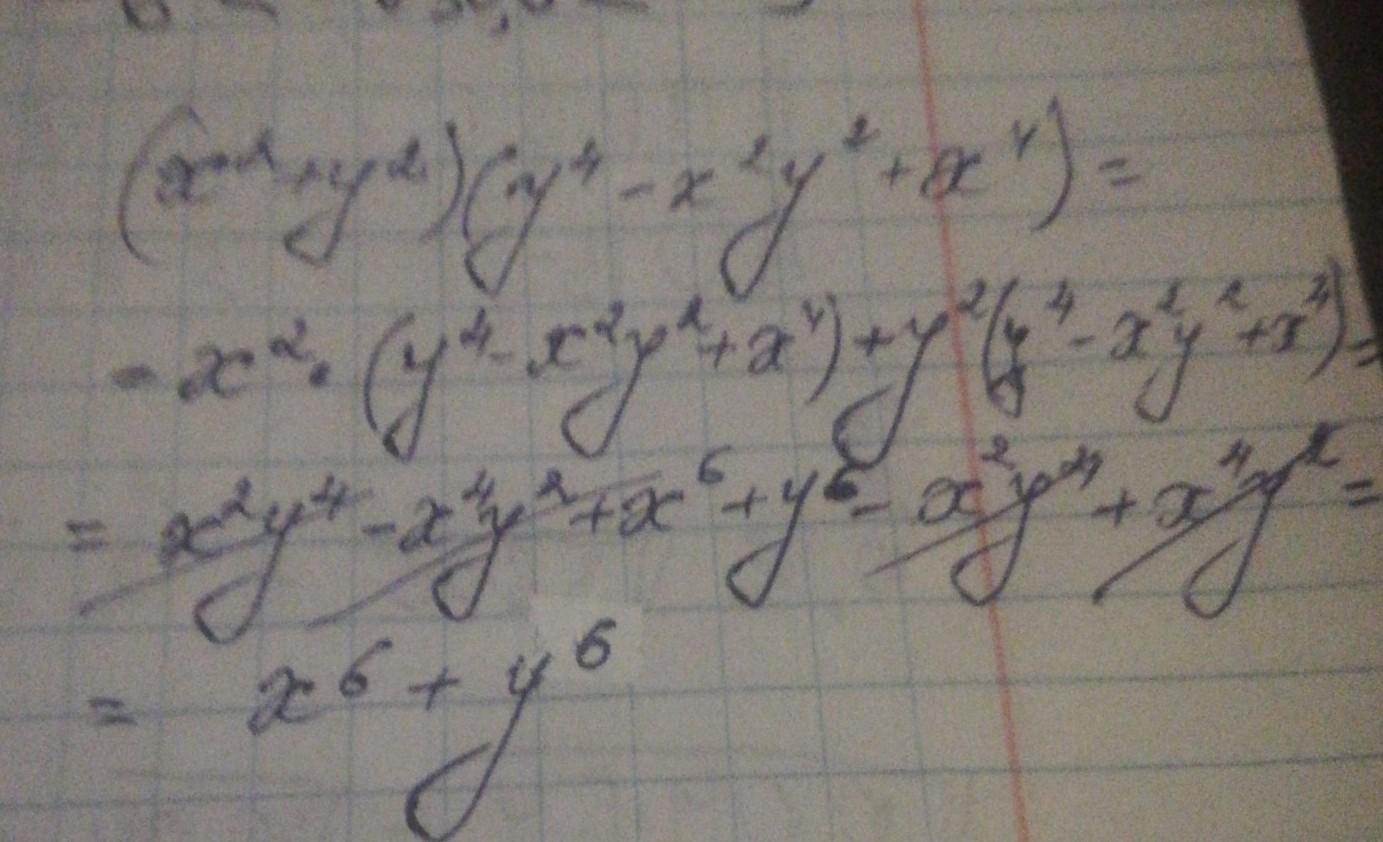 (x²+y²)(y⁴-x²y²+x⁴)=
=x²·(y⁴-x²y²+x⁴)+y²(y⁴-x²y²+x⁴)=
=x²y⁴-x⁴y²+x⁶+y⁶-x²y⁴+x⁴y²=
= x⁶+y⁶